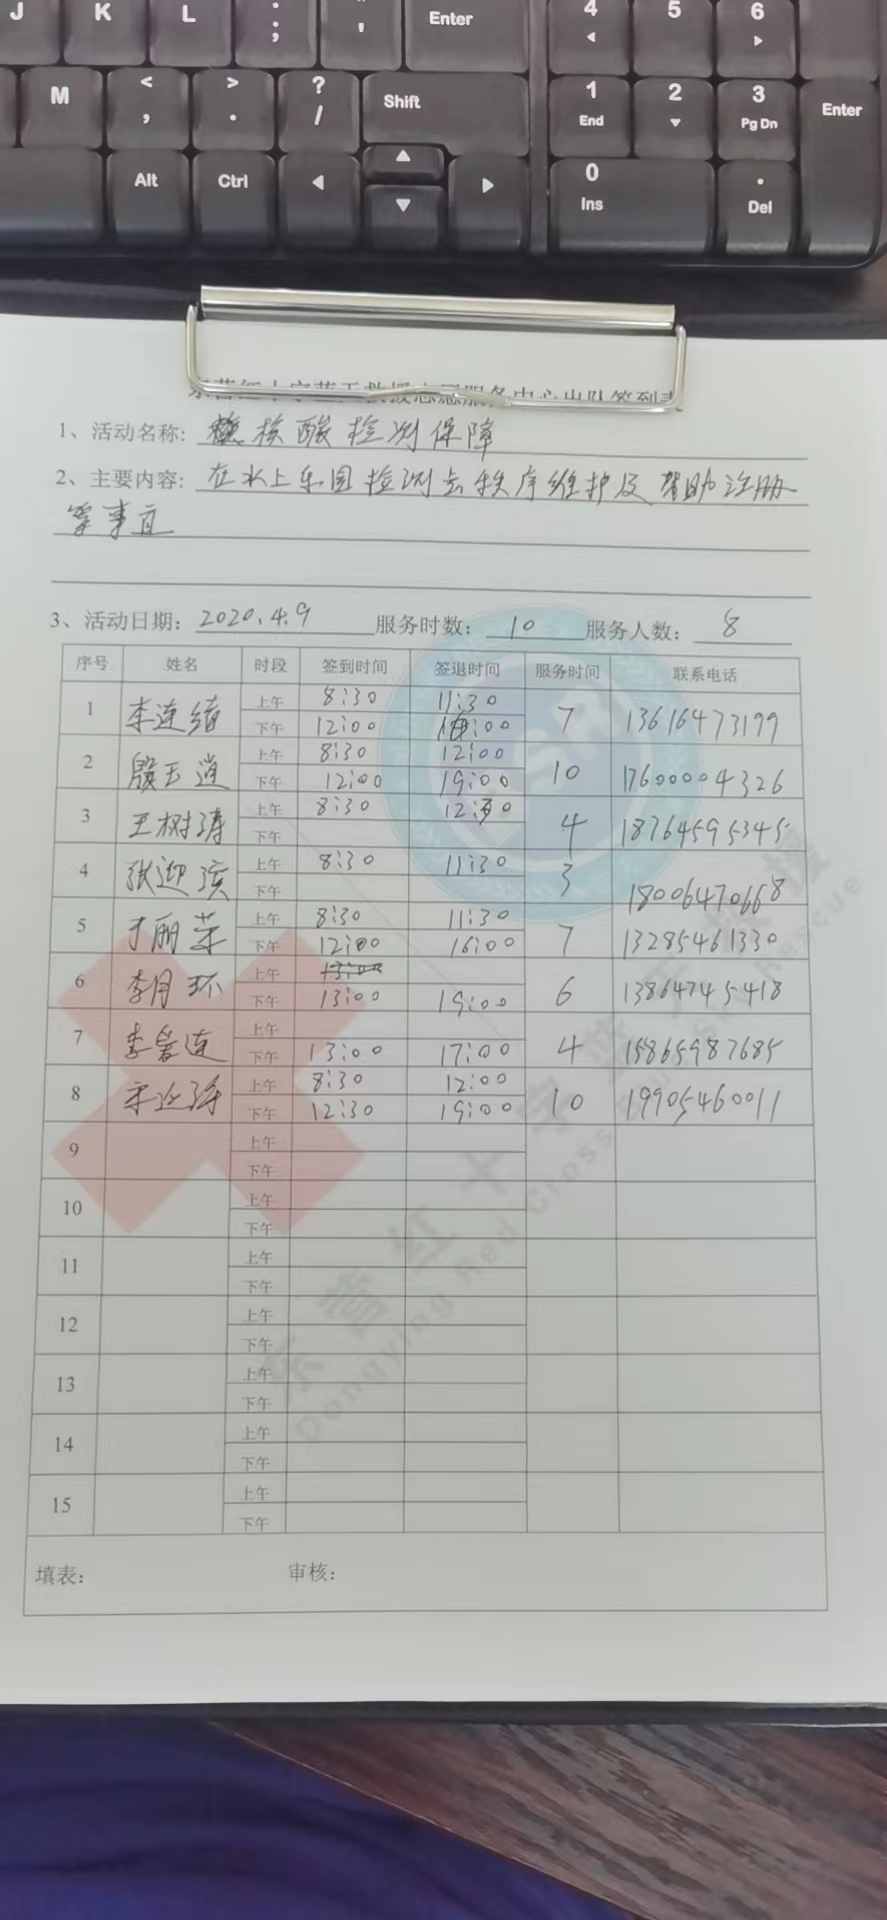 J K L : ; " ' Enter 4 5 6
M < , > . ? / Shift 1 End 2 3 Pg Dn Enter
Alt Ctrl 0 Ins . Del
东营红十字蓝天救援志愿服务中心出队签到表
1、活动名称: 核酸检测保障
2、主要内容: 在水上乐园检测点秩序维护及帮助注册
等事宜
3、活动日期: 2020.4.9 服务时数: 10 服务人数: 8
序号 姓名 时段 签到时间 签退时间 服务时间 联系电话
1 李连绪 上午 8:30 11:30 7 13616473199
下午 12:00 16:00
2 殷玉道 上午 8:30 12:00 10 17600004326
下午 12:00 19:00
3 王树涛 上午 8:30 12:30 4 18764595345
下午
4 张迎滨 上午 8:30 11:30 3 18006470668
下午
5 于丽荣 上午 8:30 11:30 7 13285461330
下午 12:00 16:00
6 李月环 上午 13:00 6 13864745418
下午 13:00 19:00
7 李爱连 上午 4 15865987685
下午 13:00 17:00
8 宋延 上午 8:30 12:00 10 19905460011
下午 12:30 19:00
9 上午
下午
10 上午
下午
11 上午
下午
12 上午
下午
13 上午
下午
14 上午
下午
15 上午
下午
填表: 审核:
东营红十字蓝天救援
Dongying Red Cross Blue Sky Rescue